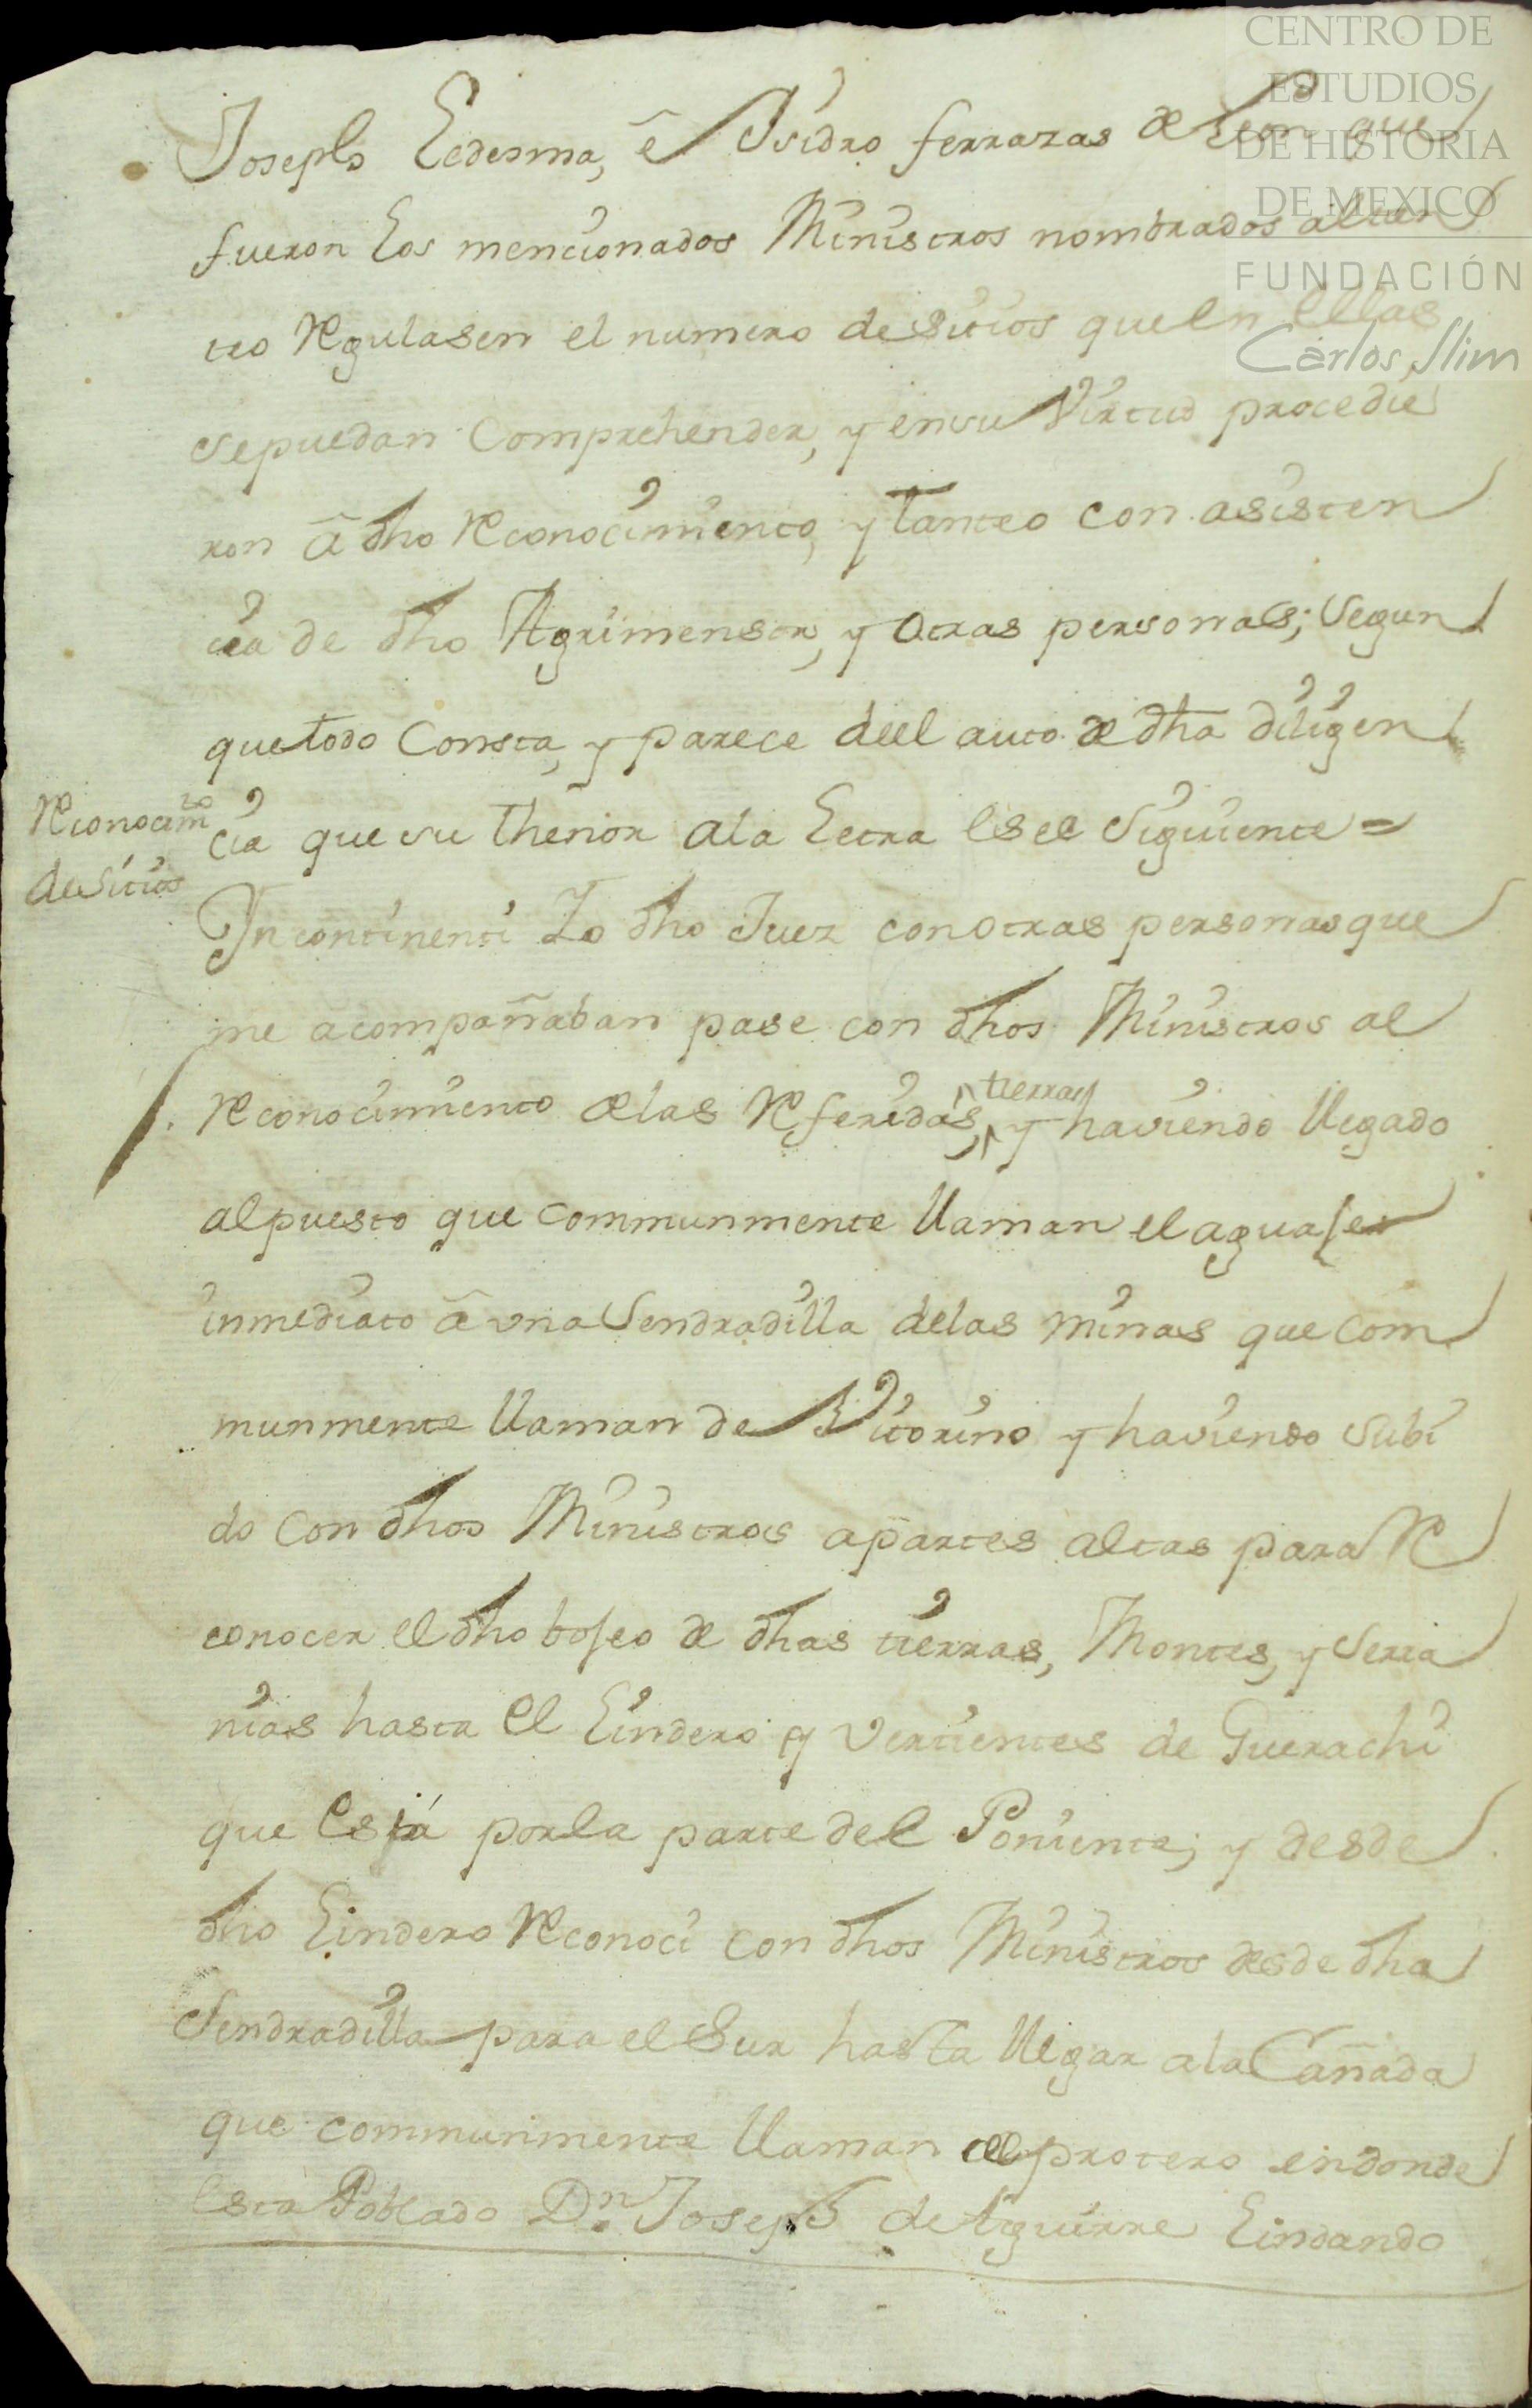 CENTRO DE
ESTUDIOS
DE HISTORIA
DE MEXICO
FUNDACIÓN
Carlos Slim
Joseph Ledesma, ê Ysidro ferraras de Leon que
fueron los mencionados Ministros nombrados al tan
teo Regulasen el numero de sitios que en Ellas
se puedan Comprehender, y en su Virtud procedie
ron â dho Reconocimiento, y tanteo con asisten
cia de dho Agrimensor, y otras personas; Segun
que todo Consta, y parece deel auto de dha diligen
cia que su thenor a la Letra es el Siguiente =
Reconocim.to
de Sitios
Yn continenti Yo dho Juez con otras personas que
me acompañaban pase con dhos Ministros al
Reconocimiento de las Referidas, tierras y haviendo llegado
al puesto que communmente llaman el aguaje
inmediato â una Sendradilla de las minas que com
munmente llaman de Vitorino y haviendo subi
do con dhos Ministros a partes altas para Re
conocer el dho bojeo de dhas tierras, Montes, y Serra
nias hasta el Lindero y vertientes de Guerachi
que está por la parte del Poniente; y desde
dho Lindero Reconoci con dhos Ministros desde dha
Sendradilla para el Sur hasta llegar a la Cañada
que communmente llaman del protero en donde
esta Poblado Dn. Joseph de Aguirre Lindando